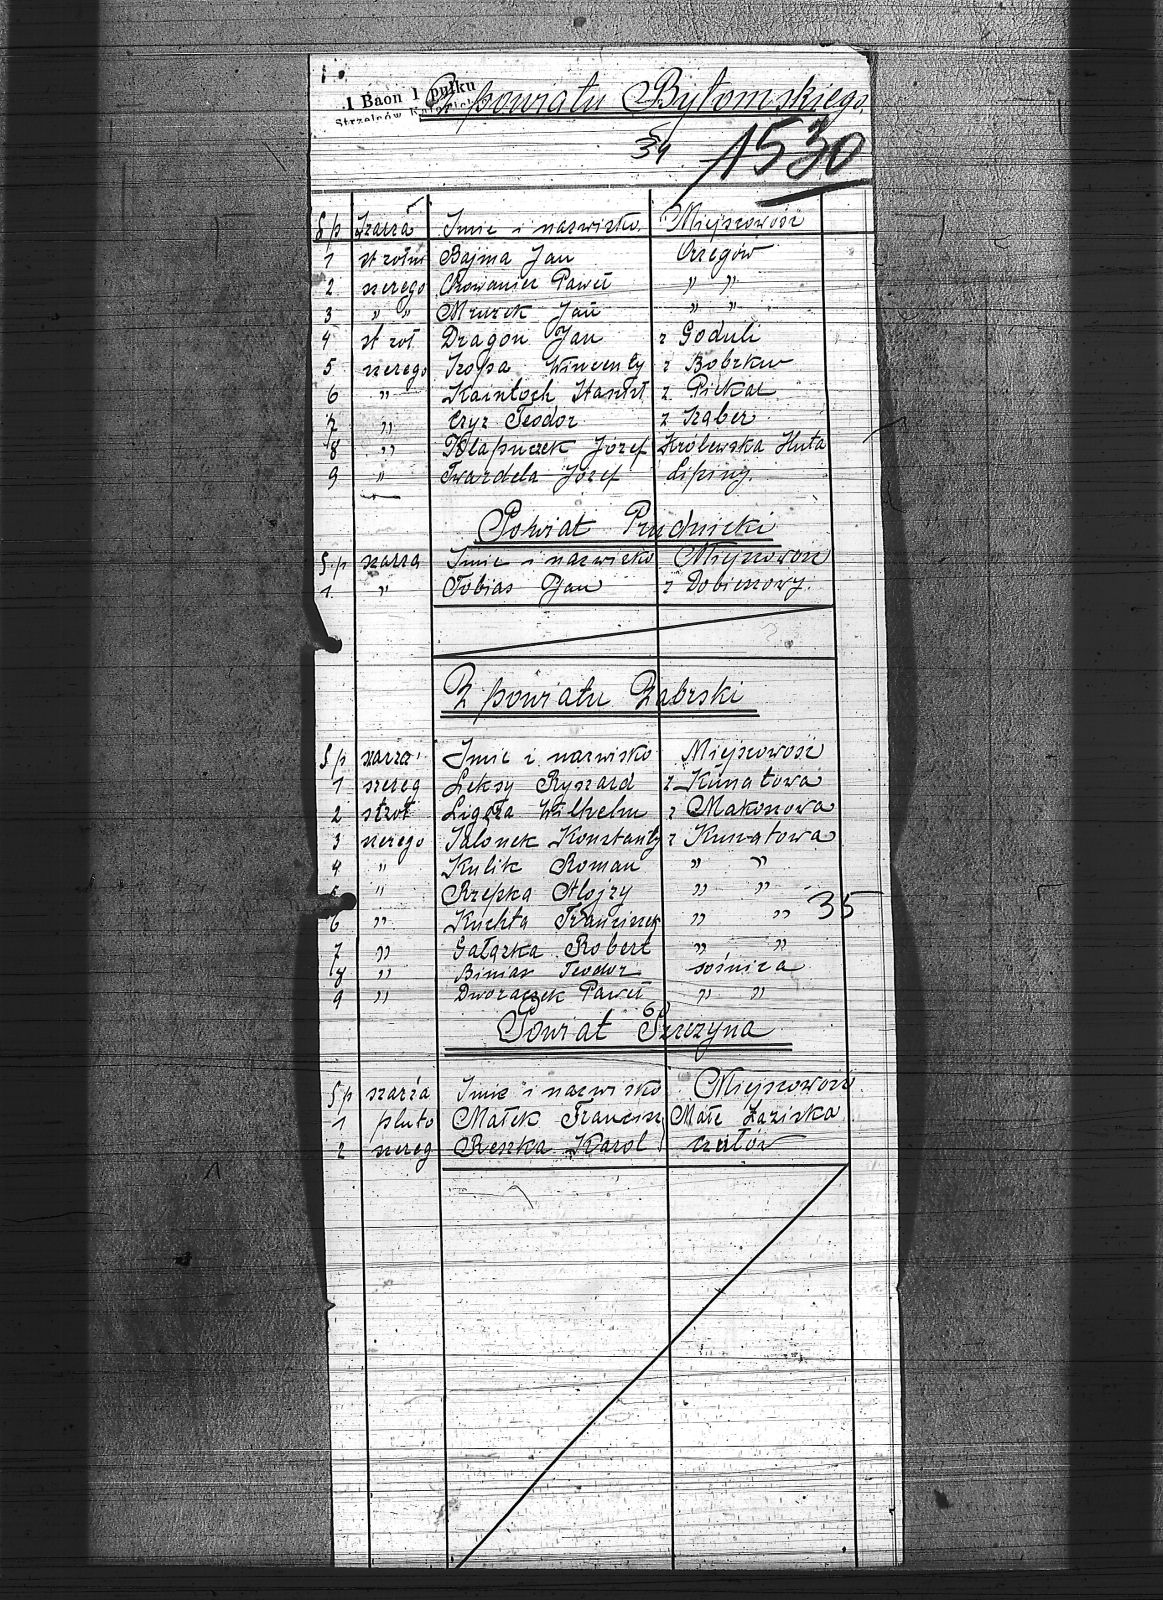 1 Baon 1 pułku
Z powiatu Bytomskiego.
34 1530
Lp szarża Imie i nazwisko Miejscowość
1 st żołni Bajma Jan Orzegów
2 szerego Chowaniec Paweł " "
3 " " Mrozek Jan " "
4 st żoł Dragon Jan z Goduli
5 szerego Wincenty z Bobrku
6 " z Piekar
7 " Czyż Teodor z
8 " Józef Królewska Huta
9 " Twardela Józef Lipiny.
Powiat Prudnicki
Lp szarża Imie i nazwisko Miejscowość
1. " Tobias Jan z
Z powiatu Zabrski
Lp szarża Imie i nazwisko Miejscowość
1 szereg Leksy Ryszard z
2 st żoł Ligęza Wilhelm z Makoszowa
3 szerego Konstanty z
4 " Kulik Roman " "
5 " Rzepka Alojzy " "
35
6 " Kuchta Franciszek " "
7 " Gałązka Robert " "
8 " Binias Teodor Sośnica
9 " Dworaczek Paweł " "
Powiat Pszczyna
Lp szarża Imie i nazwisko Miejscowość
1 pluto Małek Francisz Małe Łaziska
2 szereg Reszka Karol